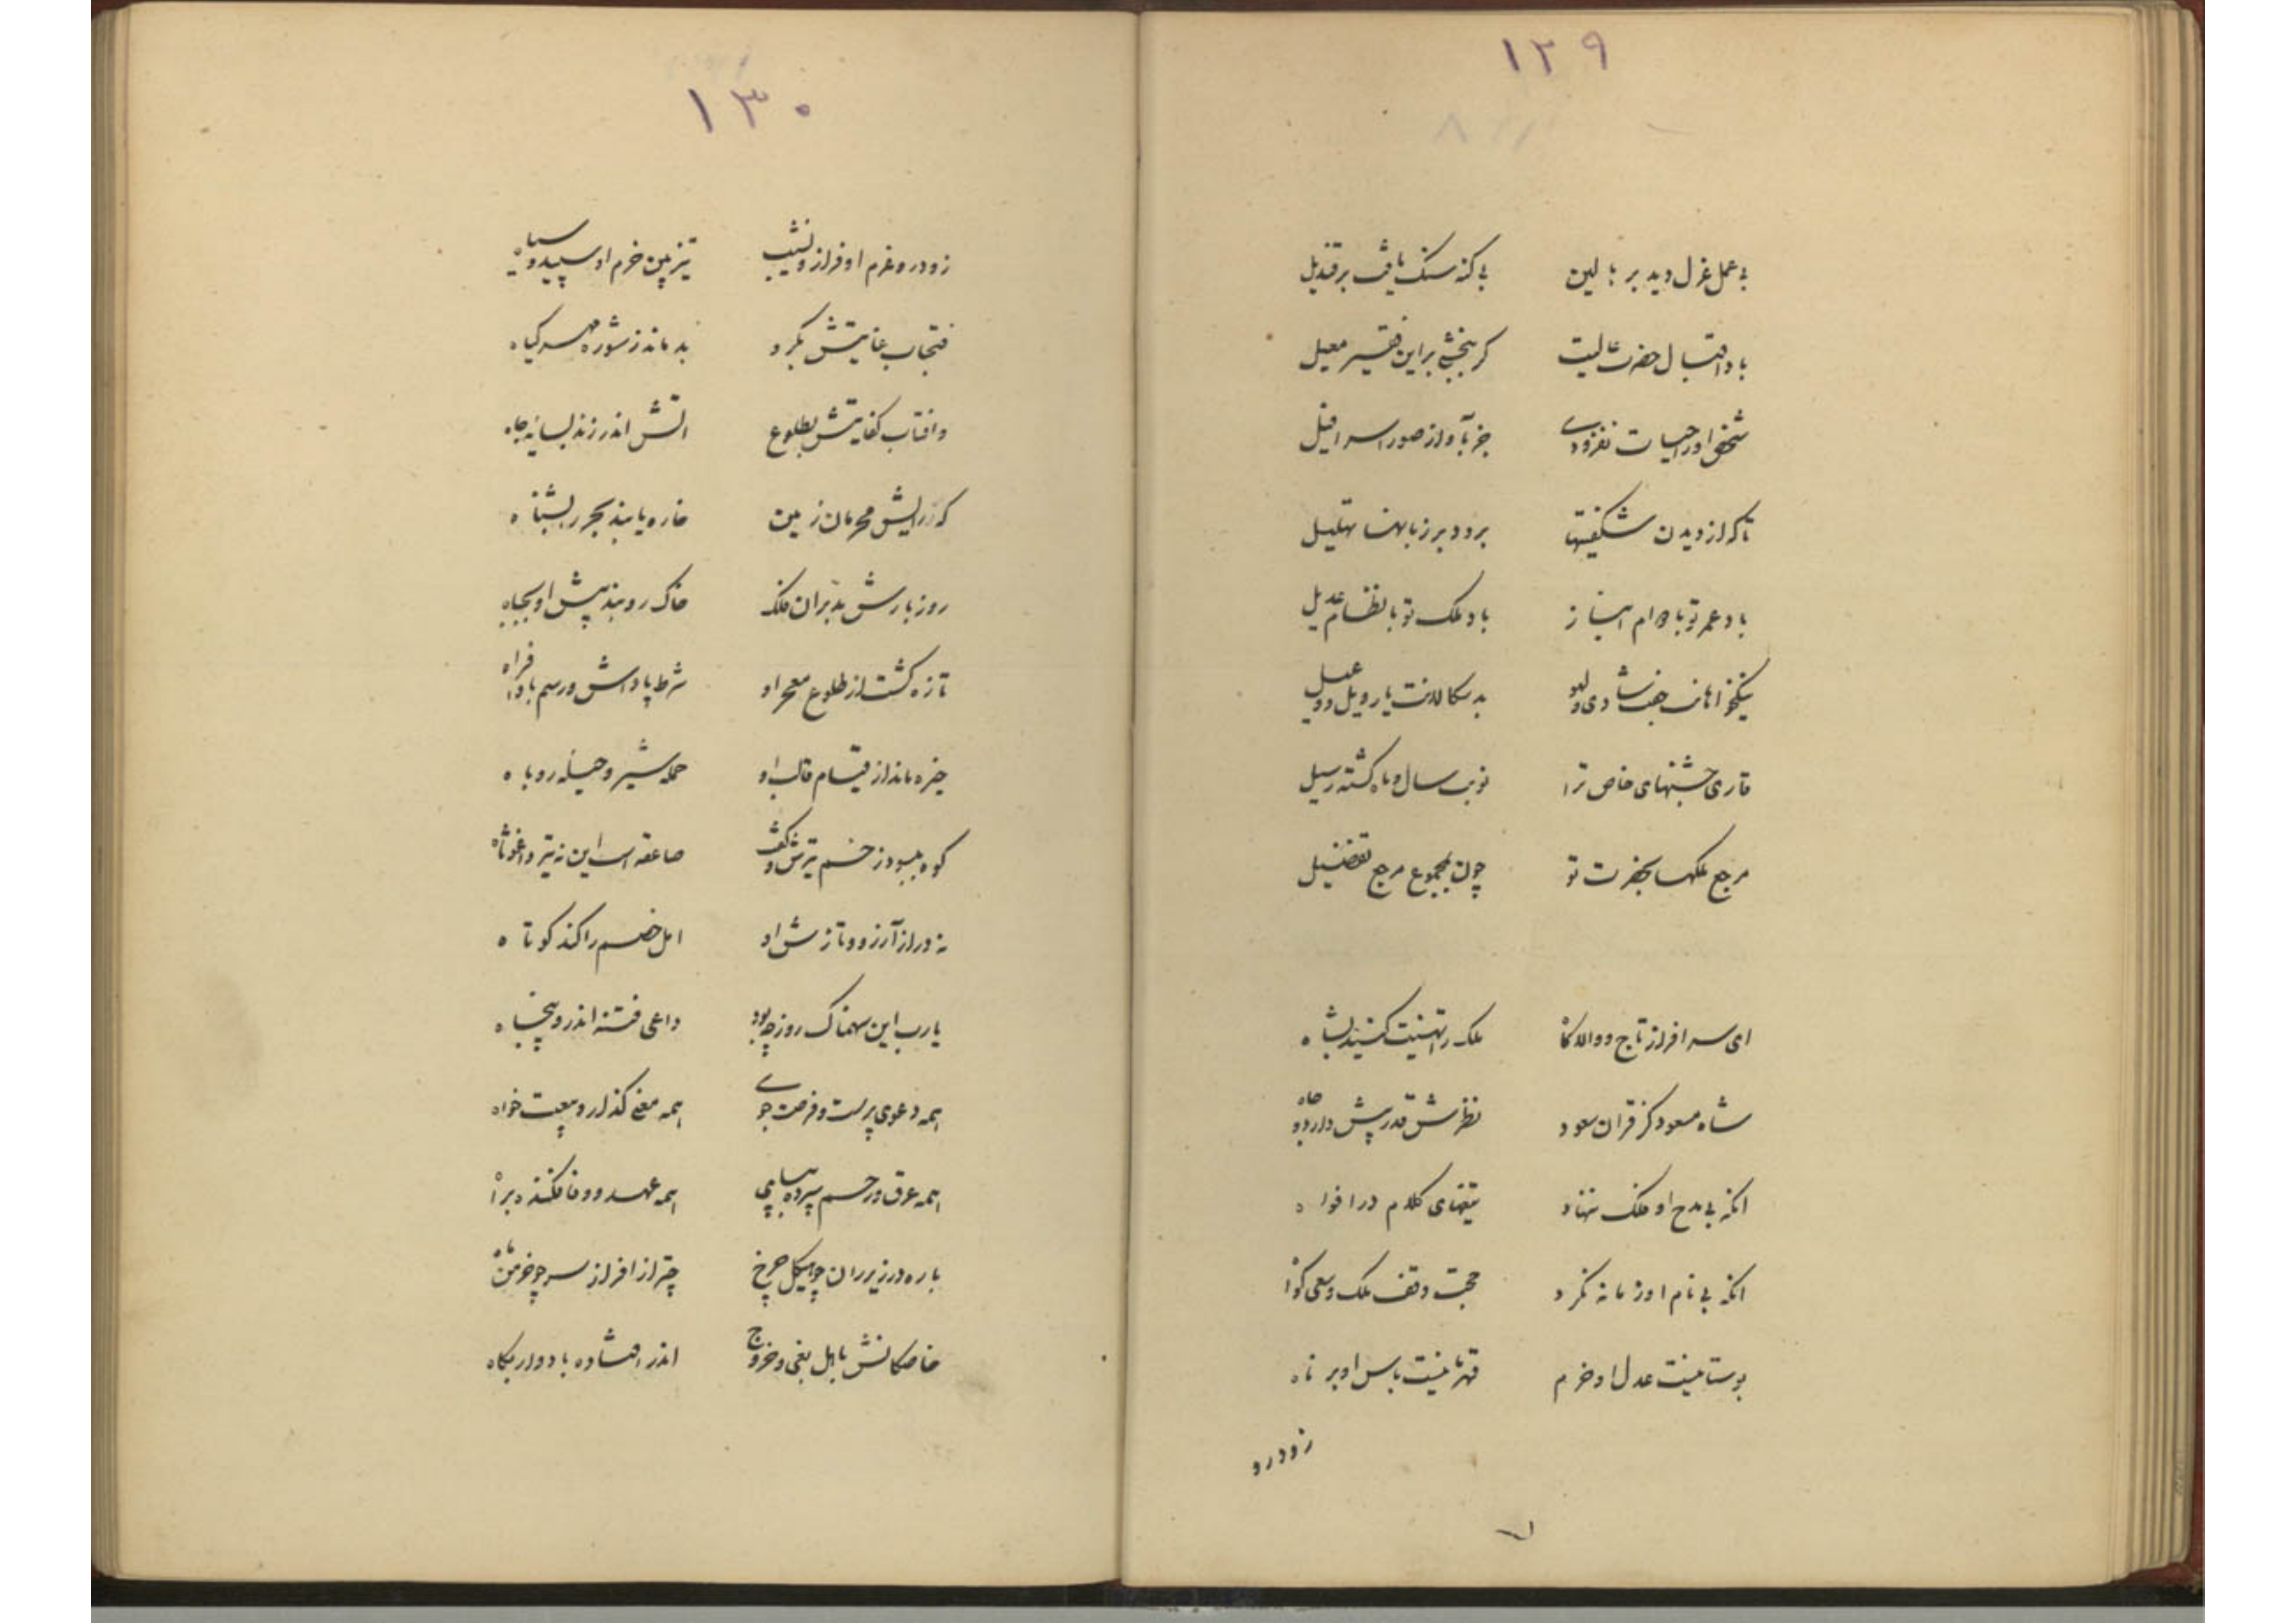 ۱۲۹
بی عمل عزل دید بر بالین بی کنه سنک یافت بر قندیل
باد اقبال حضرت عالیت کر ببخشی براین فقیر معیل
شخص اورا حیات نفزودی جز بآواز صور اسرافیل
تا که از دیدن شکفتیها برود بر زبانها تهلیل
باد عمر تو با دوام انباز باد ملک تو با نظام عدیل
نیکخواهانت جفت شادی و لهو بدسکالانت یار ویل و عویل
قاری جشنهای خاص ترا نوبت سال و ماه کشته رسیل
مرجع ملکها بحضرت تو چون بمجموع مرجع تفضیل
ای سرافراز تاج و والا کاه ملک را تهنیت کنید بشاه
شاه مسعود کز قران سعود نظرش قدر پیش دارد و جاه
انکه بی مدح او ملک ننهاد تیغهای کلام در افواه
انکه بی نام او زمانه نکرد حجت وقف ملک و سعی کواه
بوستانیست عدل او خرم قهرمانیست باس او برناه
زود رو
۱۳۰
زود رو عزم او فراز و نشیب تیزبین حزم او سپید و سیاه
فتحاب عنایتش بکرد بدماند ز شوره مهر کیاه
وافتاب کفایتش بطلوع اتش اندر زند بسایه چاه
که ز رایش محرمان زمین خاره یابند بحر را بشناه
روز بارش مدبران فلک خاک روبند پیش او بجباه
تازه کشت از طلوع معجر او شرط پاداش و رسم باد افراه
خیره ماند از قیام غالب او حمله شیر و حیله روباه
کوه بیسود زخم تیرش و کفت صاعقه است این نه تیر واغوثاه
نه دراز آرزو و تازش او امل خصم را کند کوتاه
یارب این سهمناک روز چه بود داعی فتنه اندرو پنجاه
همه دعوی پرست و فرصت جوی همه معنی کذار و بیعت خواه
همه عرق و رحم سپرده بپای همه عهد و وفا فکنده براه
باره در زیر ران چو هیکل چرخ چتر از افراز سر چو خرمن ماه
خاصکانش باهل بغی و خروج اندر افتاده باد وار بکاه